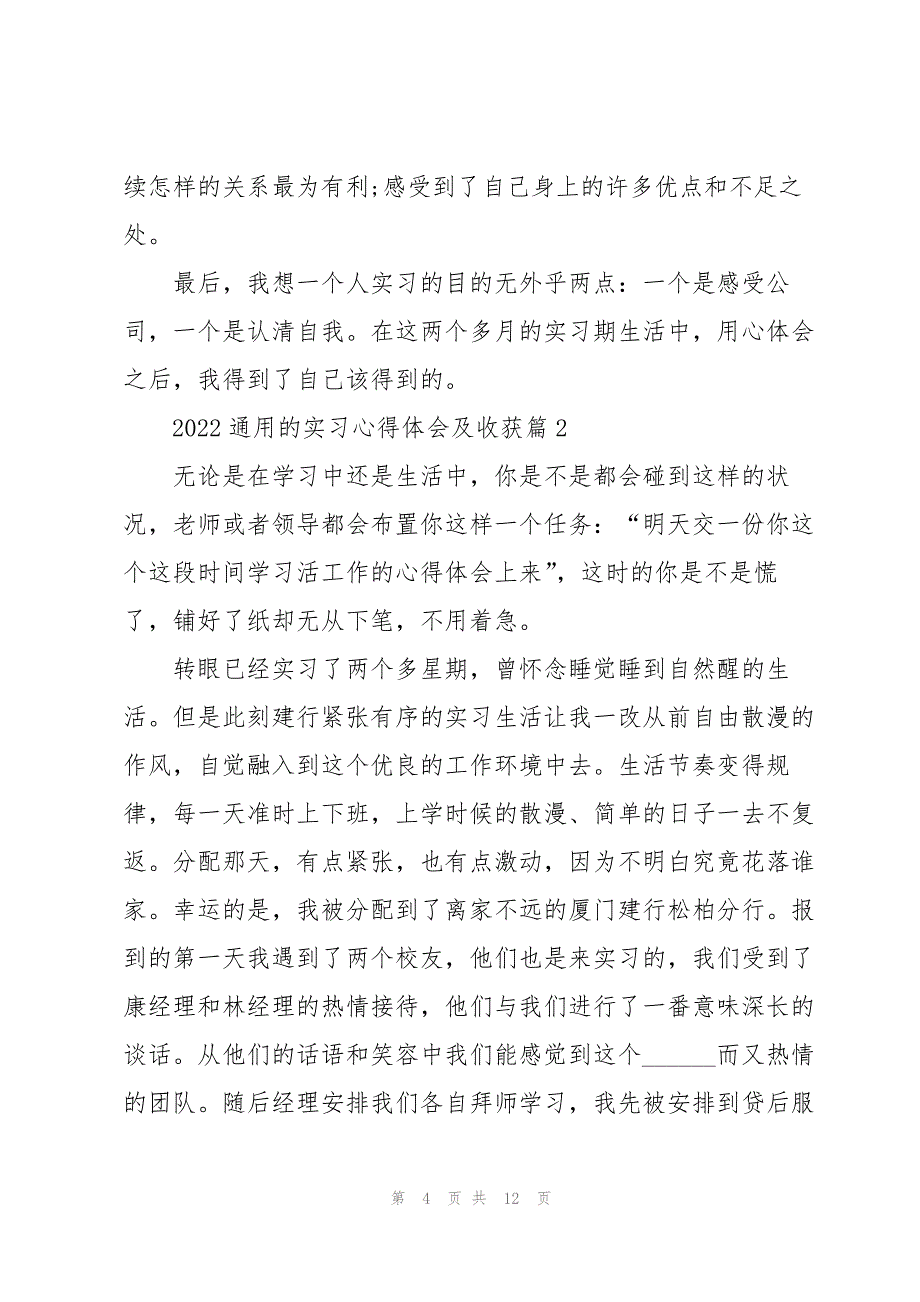 续怎样的关系最为有利;感受到了自己身上的许多优点和不足之
处。
最后，我想一个人实习的目的无外乎两点：一个是感受公
司，一个是认清自我。在这两个多月的实习期生活中，用心体会
之后，我得到了自己该得到的。
2022 通用的实习心得体会及收获篇 2
无论是在学习中还是生活中，你是不是都会碰到这样的状
况，老师或者领导都会布置你这样一个任务：“明天交一份你这
个这段时间学习活工作的心得体会上来”，这时的你是不是慌
了，铺好了纸却无从下笔，不用着急。
转眼已经实习了两个多星期，曾怀念睡觉睡到自然醒的生
活。但是此刻建行紧张有序的实习生活让我一改从前自由散漫的
作风，自觉融入到这个优良的工作环境中去。生活节奏变得规
律，每一天准时上下班，上学时候的散漫、简单的日子一去不复
返。分配那天，有点紧张，也有点激动，因为不明白究竟花落谁
家。幸运的是，我被分配到了离家不远的厦门建行松柏分行。报
到的第一天我遇到了两个校友，他们也是来实习的，我们受到了
康经理和林经理的热情接待，他们与我们进行了一番意味深长的
谈话。从他们的话语和笑容中我们能感觉到这个______而又热情
的团队。随后经理安排我们各自拜师学习，我先被安排到贷后服
第 4 页 共 12 页